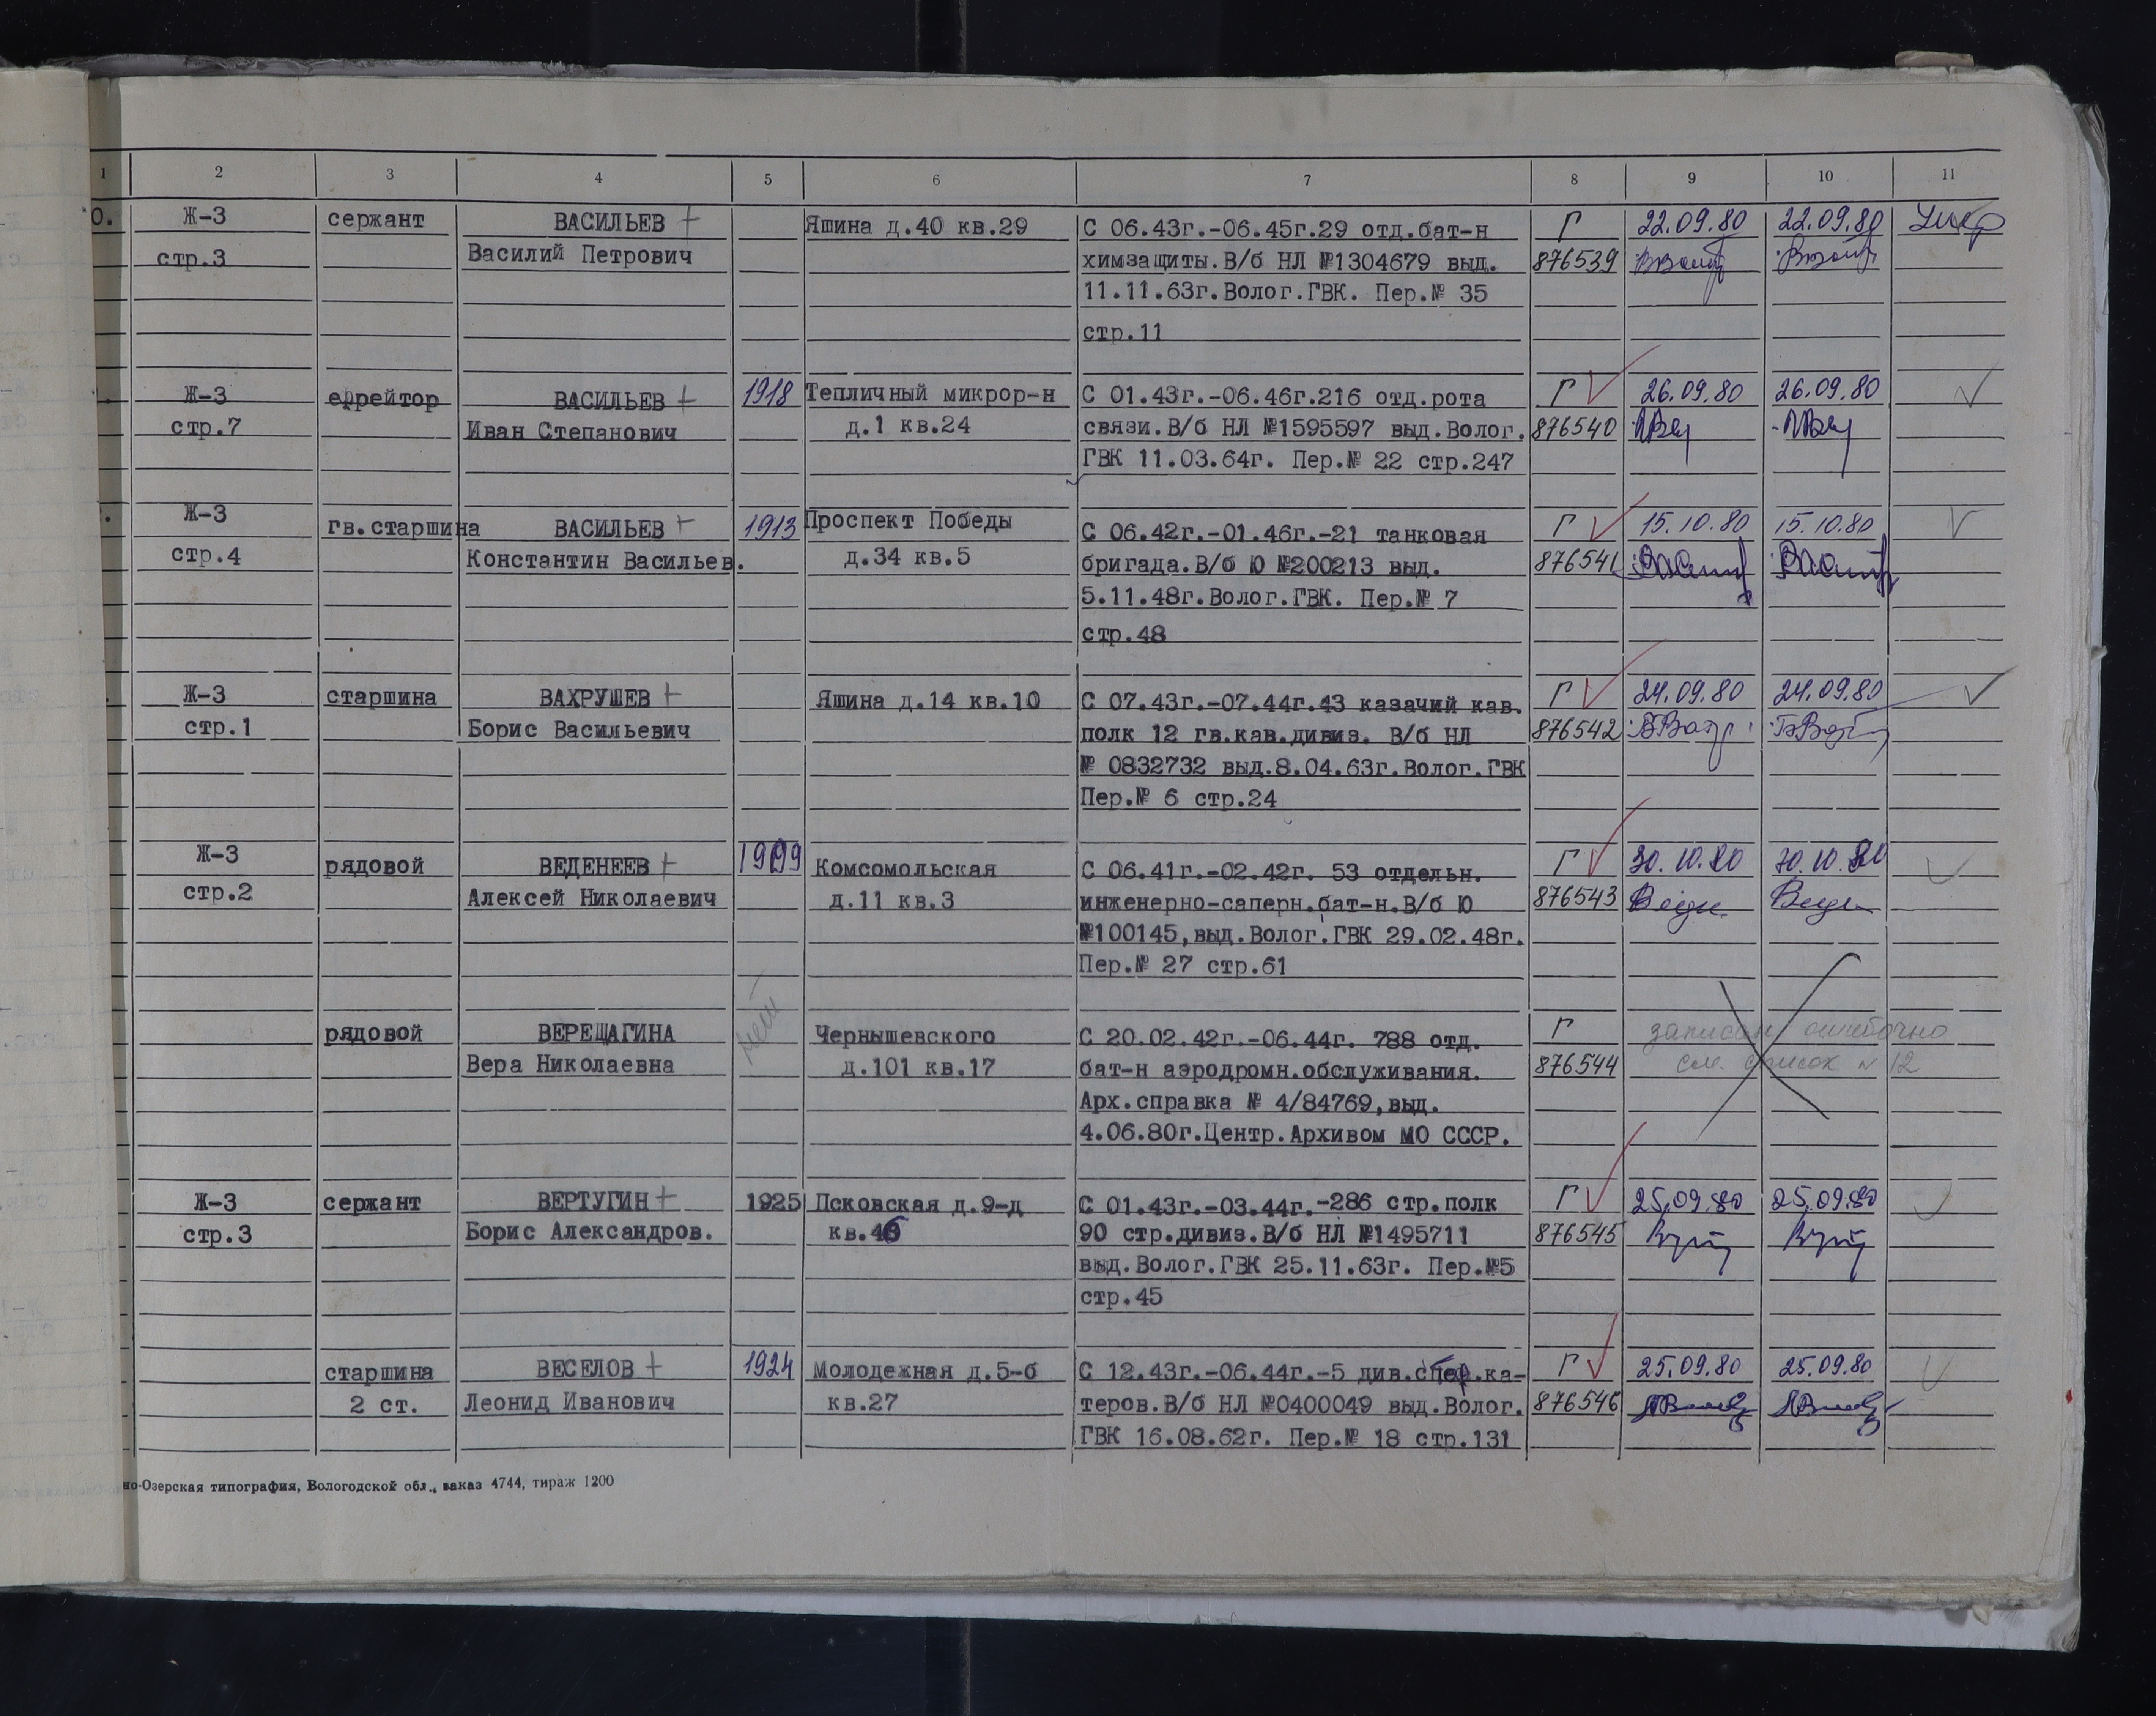 1 2 3 4 5 6 7 8 9 10 11
0. Ж-3 сержант ВАСИЛЬЕВ + Яшина д.40 кв.29 С 06.43г.-06.45г.29 отд.бат-н Г 22.09.80 22.09.80 Умер
стр.3 Василий Петрович химзащиты.В/б НЛ №1304679 выд. 876539
11.11.63г.Волог.ГВК. Пер.№ 35
стр.11
Ж-3 ефрейтор ВАСИЛЬЕВ + 1918 Тепличный микрор-н С 01.43г.-06.46г.216 отд.рота Г 26.09.80 26.09.80
стр.7 Иван Степанович д.1 кв.24 связи.В/б НЛ №1595597 выд.Волог. 876540
ГВК 11.03.64г. Пер.№ 22 стр.247
Ж-3 гв.старшина ВАСИЛЬЕВ + 1913 Проспект Победы С 06.42г.-01.46г.-21 танковая Г 15.10.80 15.10.80
стр.4 Константин Васильев. д.34 кв.5 бригада.В/б Ю №200213 выд. 876541
5.11.48г.Волог.ГВК. Пер.№ 7
стр.48
Ж-3 старшина ВАХРУШЕВ + Яшина д.14 кв.10 С 07.43г.-07.44г.43 казачий кав. Г 24.09.80 24.09.80
стр.1 Борис Васильевич полк 12 гв.кав.дивиз. В/б НЛ 876542
№ 0832732 выд.8.04.63г.Волог.ГВК
Пер.№ 6 стр.24
Ж-3 рядовой ВЕДЕНЕЕВ + 1909 Комсомольская С 06.41г.-02.42г. 53 отдельн. Г 30.10.80 30.10.80
стр.2 Алексей Николаевич д.11 кв.3 инженерно-саперн.бат-н.В/б Ю 876543
№100145,выд.Волог.ГВК 29.02.48г.
Пер.№ 27 стр.61
рядовой ВЕРЕЩАГИНА нет Чернышевского С 20.02.42г.-06.44г. 788 отд. Г записан ошибочно
Вера Николаевна д.101 кв.17 бат-н аэродромн.обслуживания. 876544 см. список № 12
Арх.справка № 4/84769,выд.
4.06.80г.Центр.Архивом МО СССР.
Ж-3 сержант ВЕРТУГИН + 1925 Псковская д.9-д С 01.43г.-03.44г.-286 стр.полк Г 25.09.80 25.09.80
стр.3 Борис Александров. кв.46 90 стр.дивиз.В/б НЛ №1495711 876545
выд.Волог.ГВК 25.11.63г. Пер.№5
стр.45
старшина ВЕСЕЛОВ + 1924 Молодежная д.5-б С 12.43г.-06.44г.-5 див. .ка- Г 25.09.80 25.09.80
2 ст. Леонид Иванович кв.27 теров.В/б НЛ №0400049 выд.Волог. 876546
ГВК 16.08.62г. Пер.№ 18 стр.131
но-Озерская типография, Вологодской обл., заказ 4744, тираж 1200